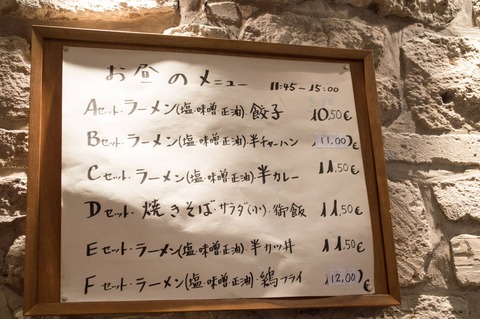 お昼のメニュー 11:45〜15:00
Aセット・ラーメン(塩・味噌正油)・餃子 10,50€
Bセット・ラーメン(塩・味噌正油)・半チャーハン 11,00€
Cセット・ラーメン(塩・味噌正油)半カレー 11,50€
Dセット・焼きそば・サラダ(小)・御飯 11,50€
Eセット・ラーメン(塩・味噌正油)半カツ丼 11,50€
Fセット・ラーメン(塩・味噌・正油)鶏フライ 12,00€